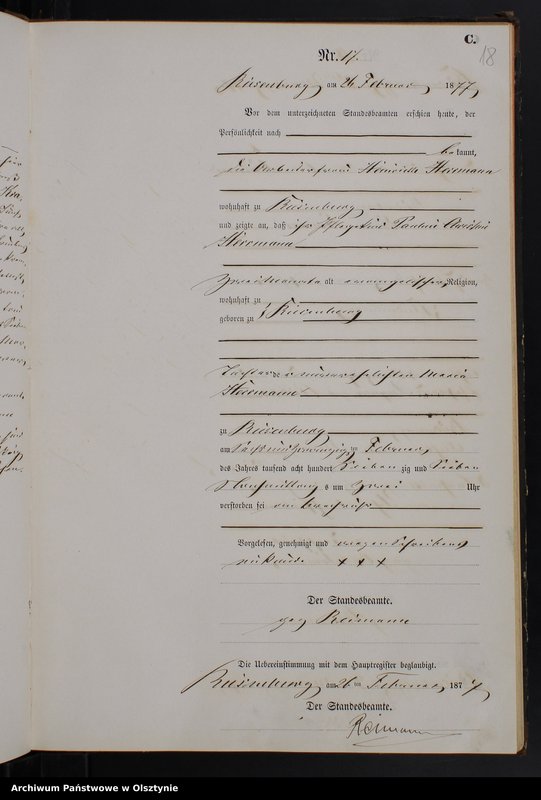 C.
18
Nr. 17.
Riesenburg am 26 Februar 1877
Vor dem unterzeichneten Standesbeamten erschien heute, der
Persönlichkeit nach
bekannt,
die Arbeiterfrau Heinriette Herrmann
wohnhaft zu Riesenburg
und zeigte an, daß ihr Pflegekind Pauline
Herrmann
zwei Monate alt evangelischer Religion,
wohnhaft zu
geboren zu Riesenburg
Tochter der unverehelichten Maria
Herrmann
zu Riesenburg
am sechsundzwanzigten Februar
des Jahres tausend acht hundert sieben zig und sieben
Nachmittags um zwei Uhr
verstorben sei
Vorgelesen, genehmigt und wegen Schreibens
unkunde x x x
Der Standesbeamte.
gez Reimann
Die Uebereinstimmung mit dem Hauptregister beglaubigt.
Riesenburg am 26 ten Februar 1877
Der Standesbeamte.
Reimann
Archiwum Państwowe w Olsztynie